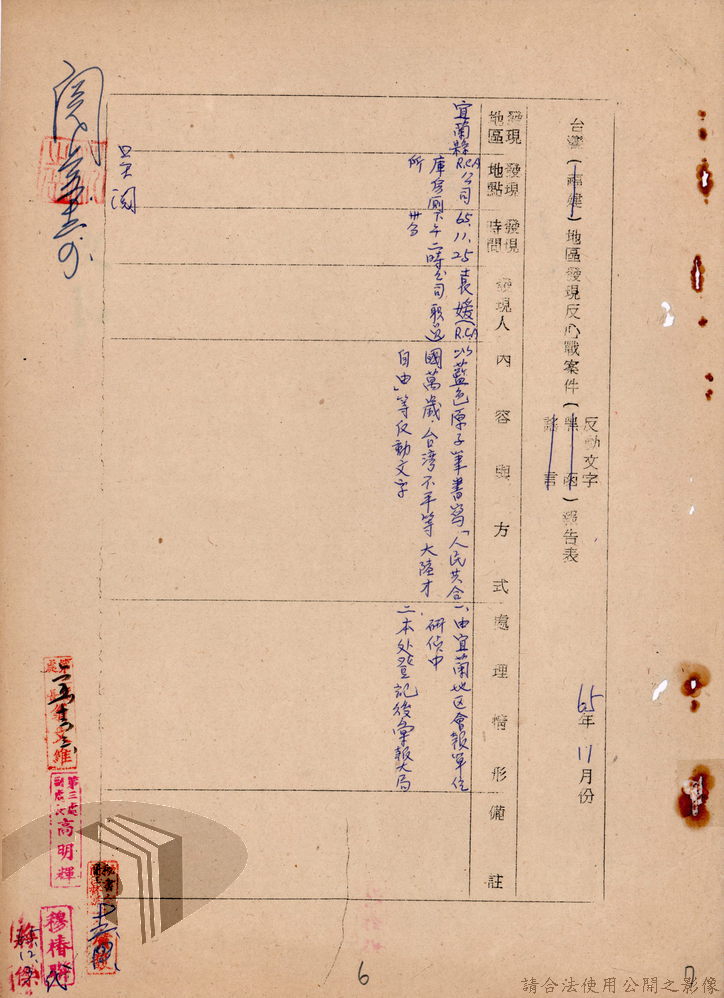 台灣（福建）地區發現反心戰案件（黑函謠言）報告表
反動文字
65年11月份
發現地區
發現地點
發現時間
發現人
內容與方式
處理情形
備註
宜蘭縣
RCA公司
庫房廁
所
65.11.25
下午二時
卅分
袁媛（RCA
公司職員
以藍色原子筆書寫「人民共合
國萬歲．台湾不平等大陸才
自由」等反動文字
一、由宜蘭地区會報單位
研偵中
二、本处登記後彙報大局
呈閱
閱
第三處
副處長
高明輝
穆椿
6
7
請合法使用公開之影像